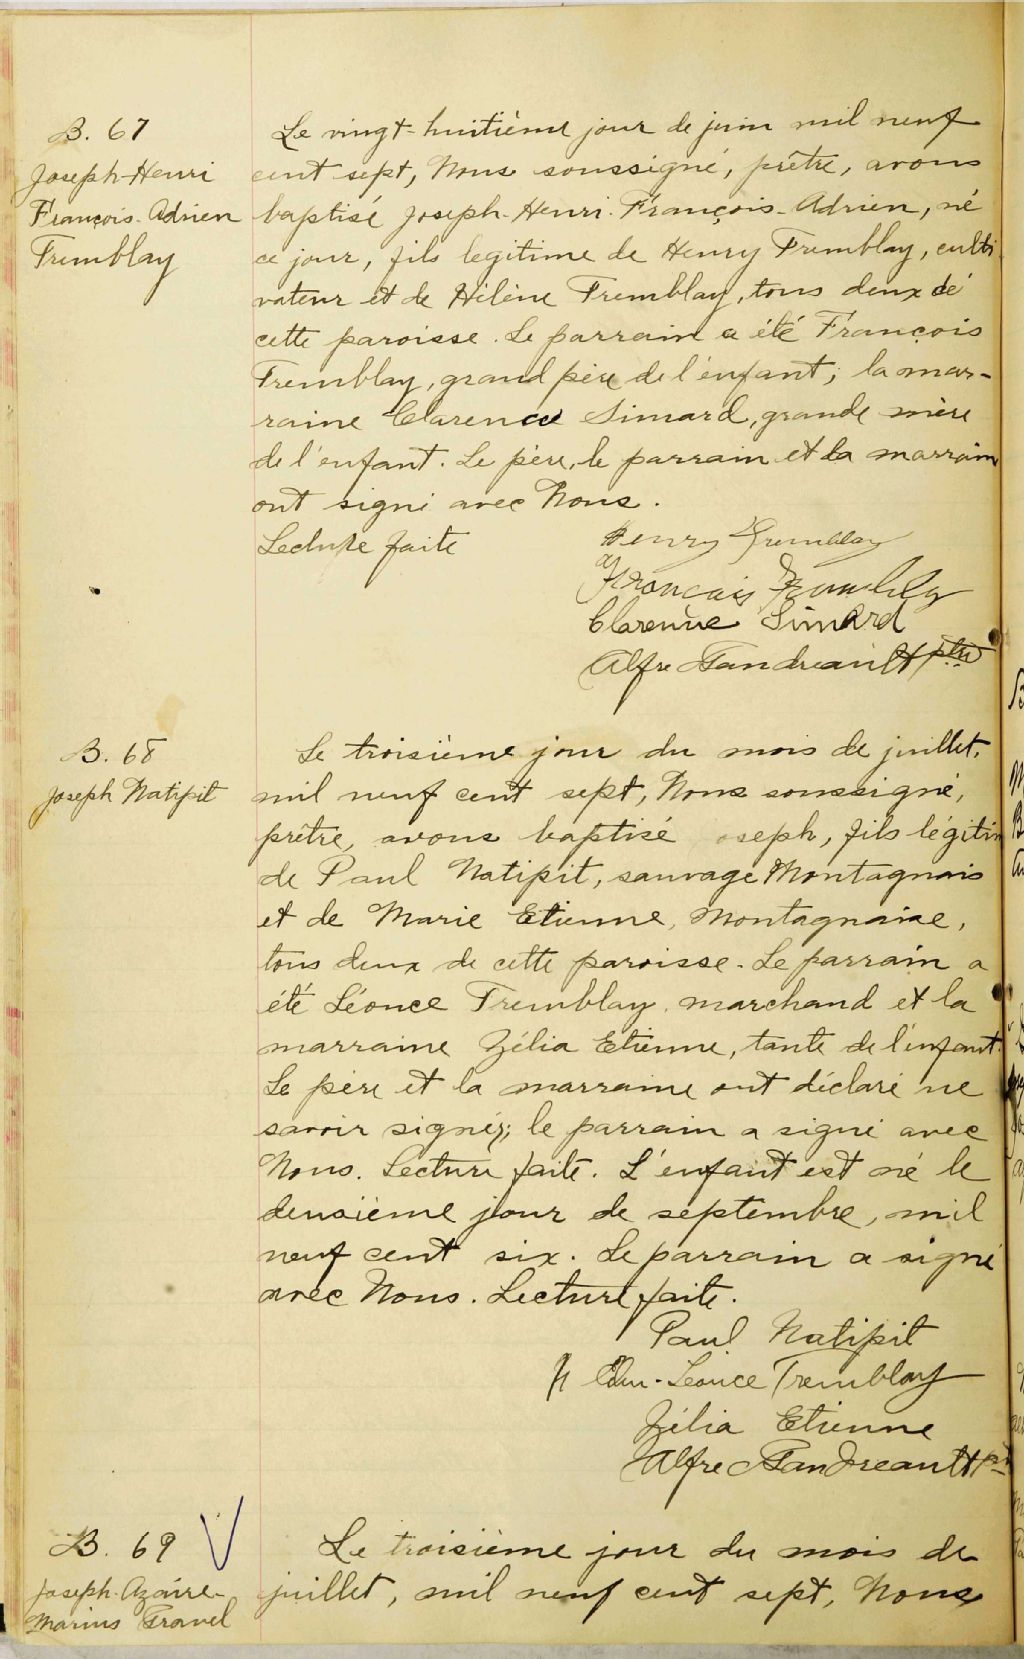 B. 67
Joseph-Henri
François-Adrien
Tremblay
Le vingt-huitième jour de juin mil neuf
cent sept, Nous soussigné, prêtre, avons
baptisé Joseph-Henri-François-Adrien, né
ce jour, fils legitime de Henry Tremblay, culti
vateur et de Hélène Tremblay, tous deux de
cette paroisse. Le parrain a été François
Tremblay, grand père de l'enfant; la mar-
raine Clarence Simard, grande mère
de l'enfant. Le père, le parrain et la marraine
ont signé avec Nous.
Lecture faite
Henry Tremblay
François Tremblay
Clarence Simard
Alfred Gandreault ptre
B. 68
Joseph Natipit
Le troisième jour du mois de juillet,
mil neuf cent sept, Nous soussigné,
prêtre, avons baptisé oseph, fils légitim
de Paul Natipit, sauvage Montagnais
et de Marie Etienne, Montagnaise,
tous deux de cette paroisse. Le parrain a
été Léonce Tremblay, marchand et la
marraine Zélia Etienne, tante de l'enfant.
Le père et la marraine ont déclaré ne
savoir signer; le parrain a signé avec
Nous. Lecture faite. L'enfant est né le
deuxième jour de septembre, mil
neuf cent six. Le parrain a signé
avec Nous. Lecture faite.
Paul Natipit
Léonce Tremblay
Zélia Etienne
Alfred Gandreault
B. 69
Joseph-Azaire-
Marius Travel
Le troisième jour du mois de
juillet, mil neuf cent sept, Nous